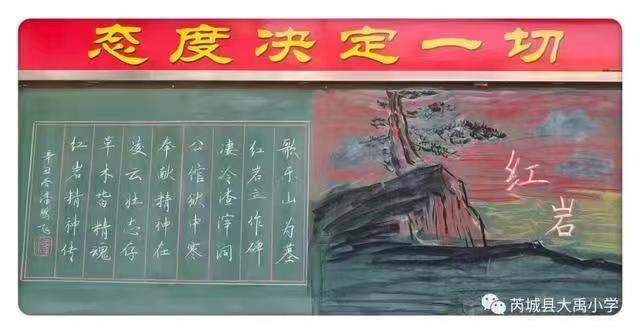 态度决定一切
歌乐山为基
红岩立作碑
凄冷渣滓洞
公馆狱中寒
奉献精神在
凌云壮志存
草木皆精魂
红岩精神传
辛丑冬潘飞
红岩
芮城县大禹小学